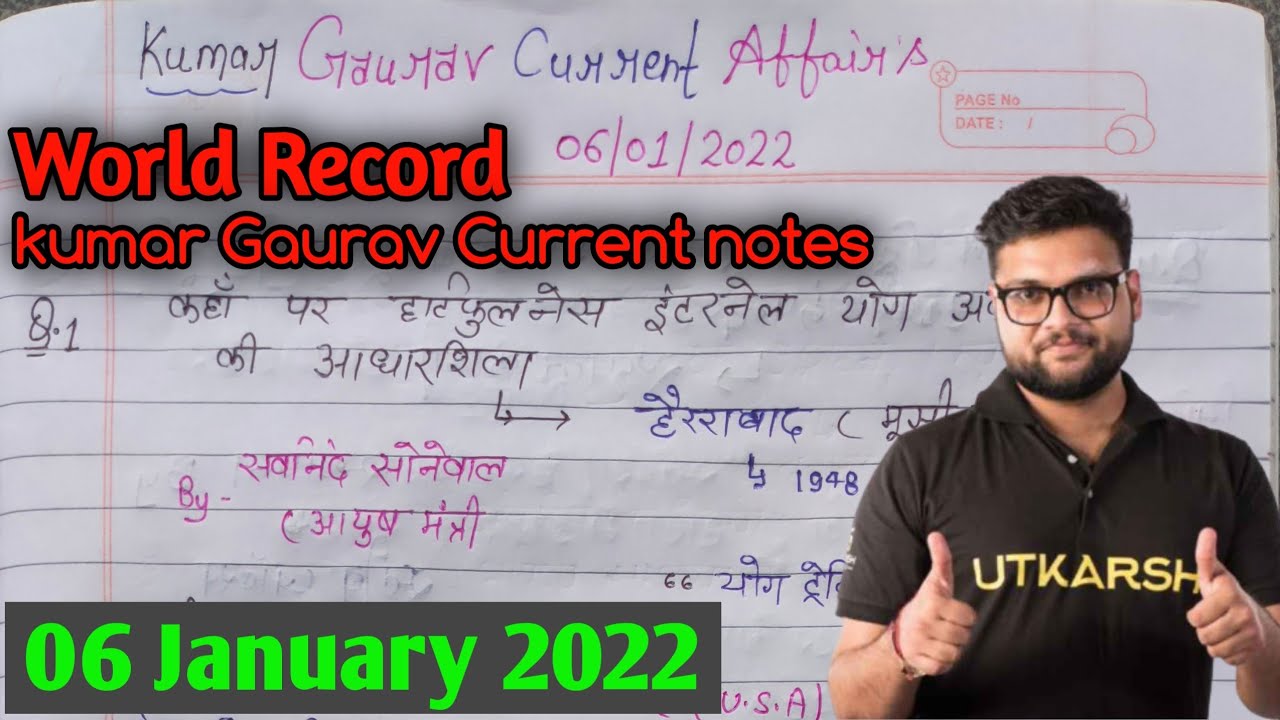 Kumar Gaurav Current Affair's
PAGE No
DATE: /
06/01/2022
World Record
kumar Gaurav Current notes
Q.1 कहाँ पर हार्टफुलनेस इंटरनेल योग
की आधारशिला
हैरराबाद ( मूसी
1948
By - सर्वानंद सोनेवाल
( आयुष मंत्री
“ योग
UTKARSH
06 January 2022
U.S.A)